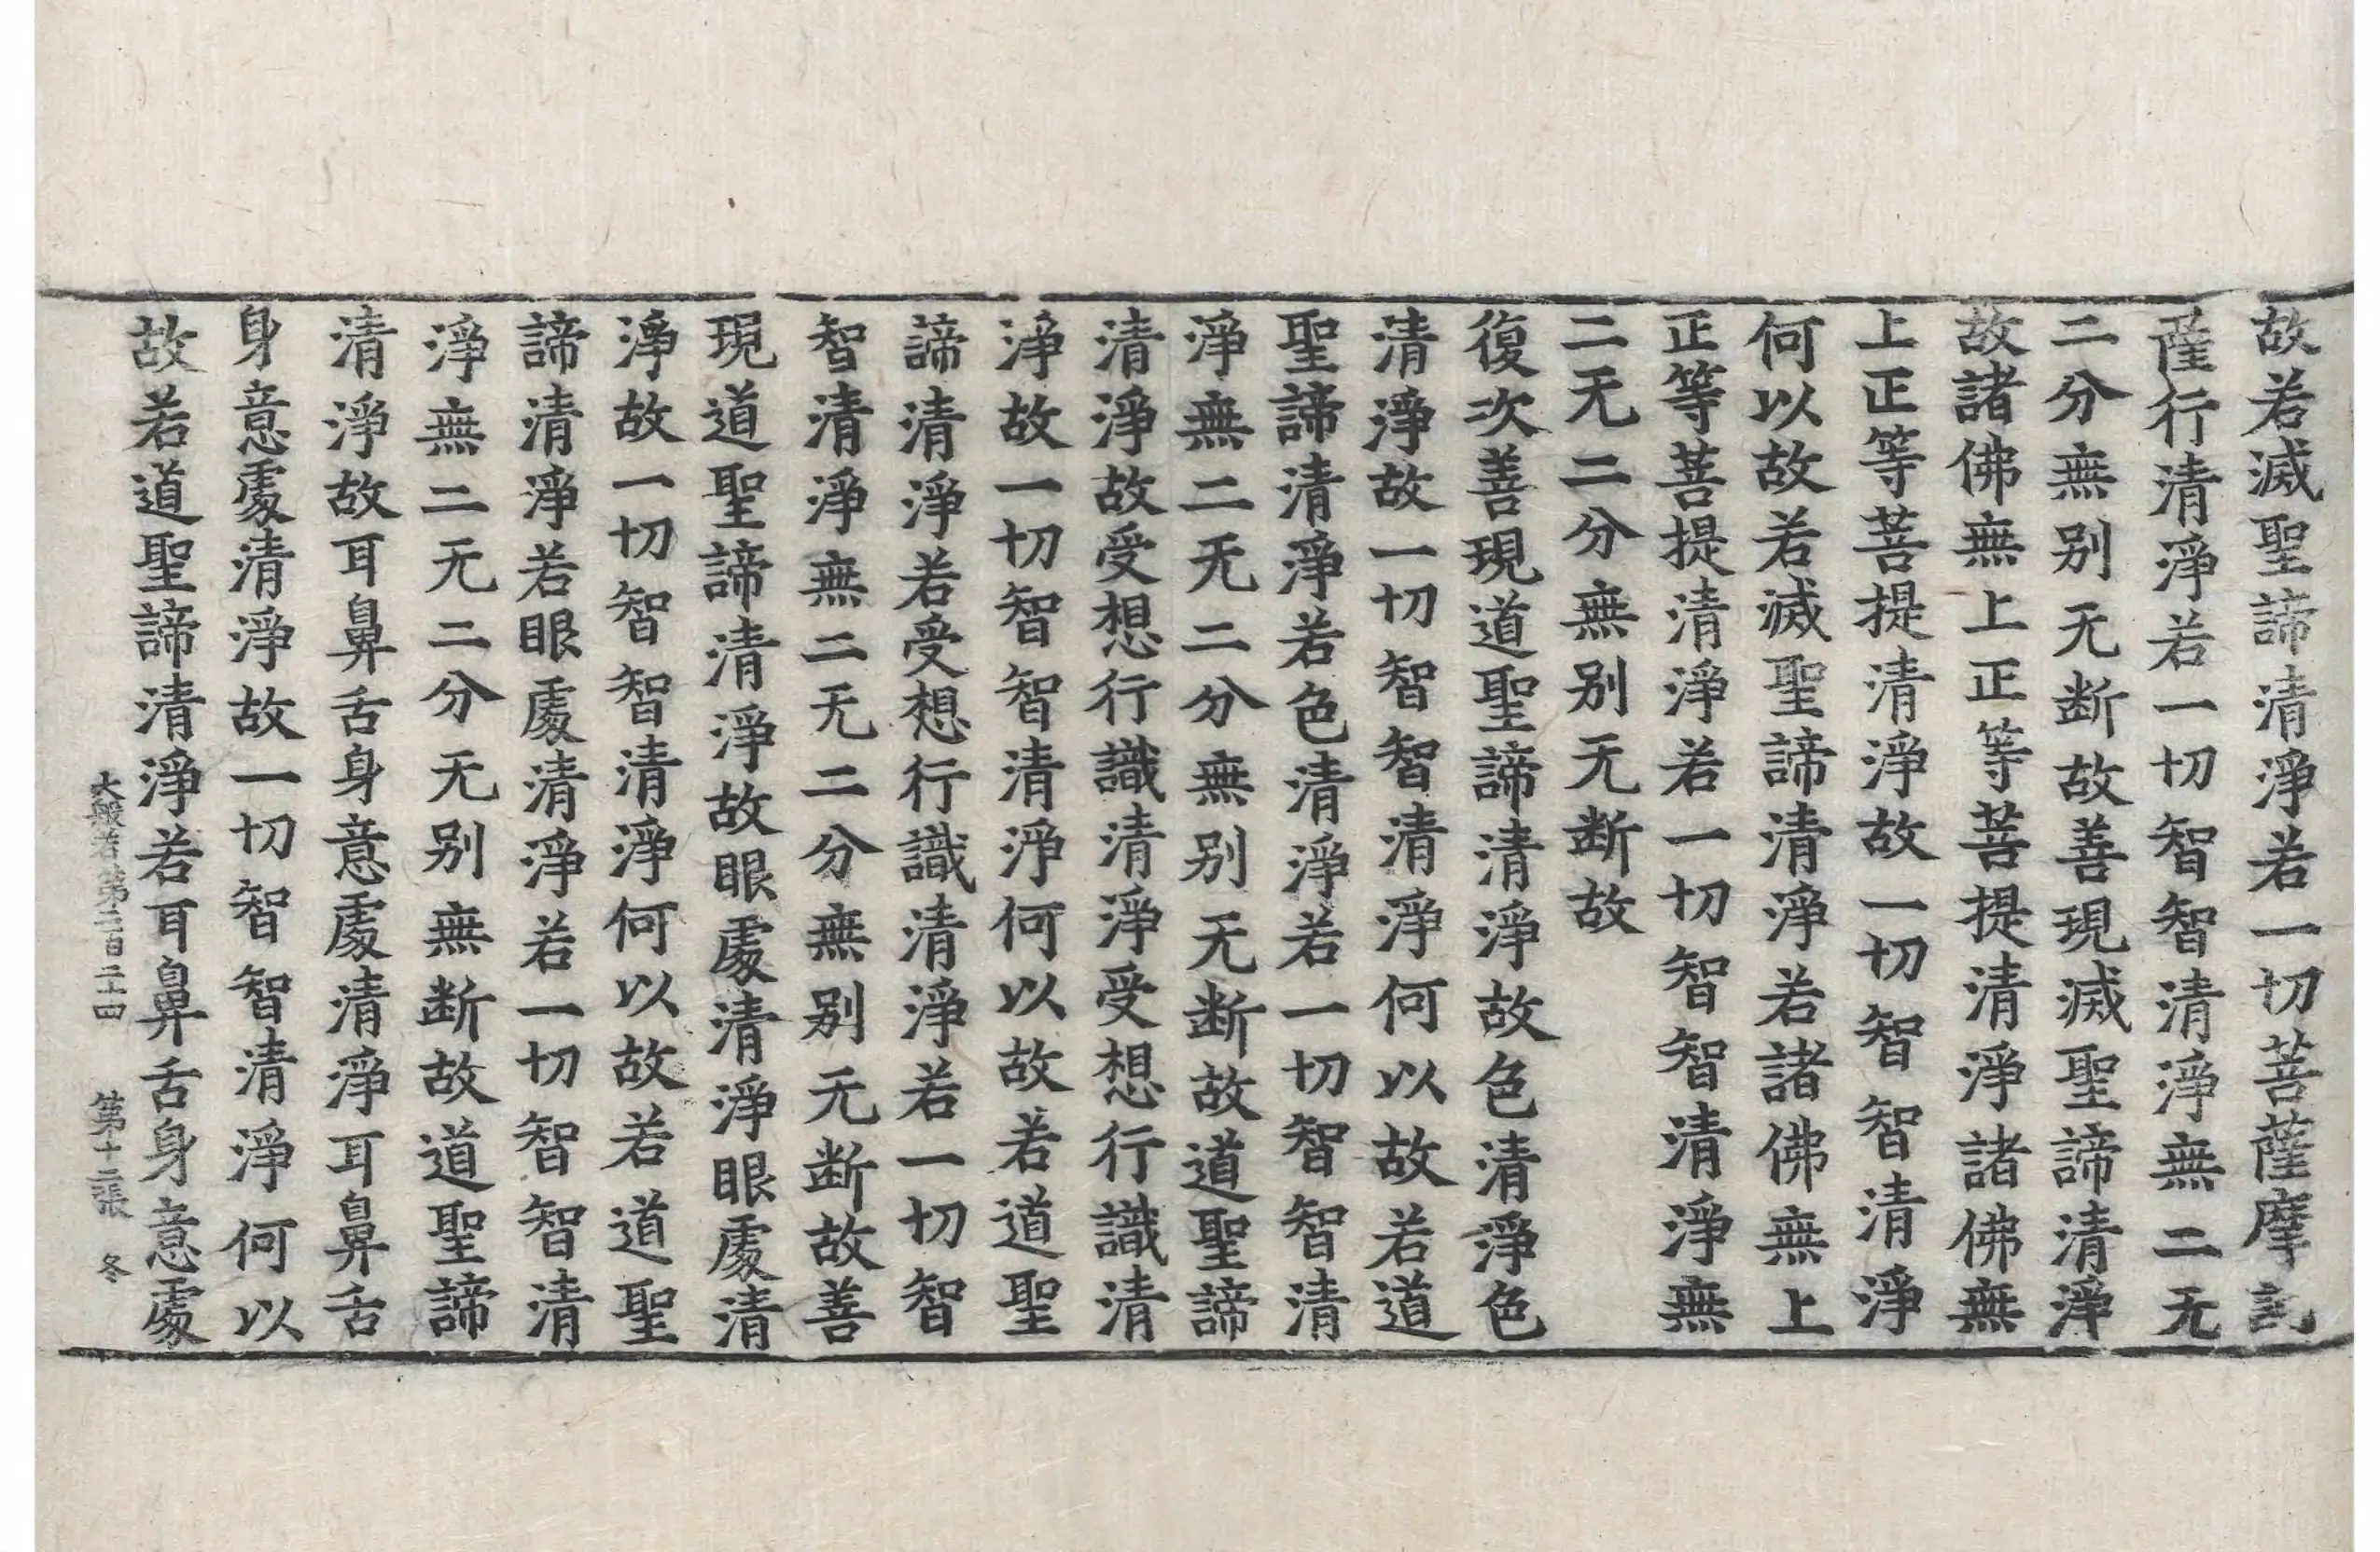 故若滅聖諦清淨若一切菩薩摩訶
薩行清淨若一切智智清淨無二无
二分無别无断故善現滅聖諦清淨
故諸佛無上正等菩提清淨諸佛無
上正等菩提清淨故一切智智清淨
何以故若滅聖諦清淨若諸佛無上
正等菩提清淨若一切智智清淨無
二无二分無别无断故
復次善現道聖諦清淨故色清淨色
清淨故一切智智清淨何以故若道
聖諦清淨若色清淨若一切智智清
淨無二无二分無别无断故道聖諦
清淨故受想行識清淨受想行識清
淨故一切智智清淨何以故若道聖
諦清淨若受想行識清淨若一切智
智清淨無二无二分無别无断故善
現道聖諦清淨故眼處清淨眼處清
淨故一切智智清淨何以故若道聖
諦清淨若眼處清淨若一切智智清
淨無二无二分无别無断故道聖諦
清淨故耳鼻舌身意處清淨耳鼻舌
身意處清淨故一切智智清淨何以
故若道聖諦清淨若耳鼻舌身意處
大般若第二百二十四 第十二張 冬